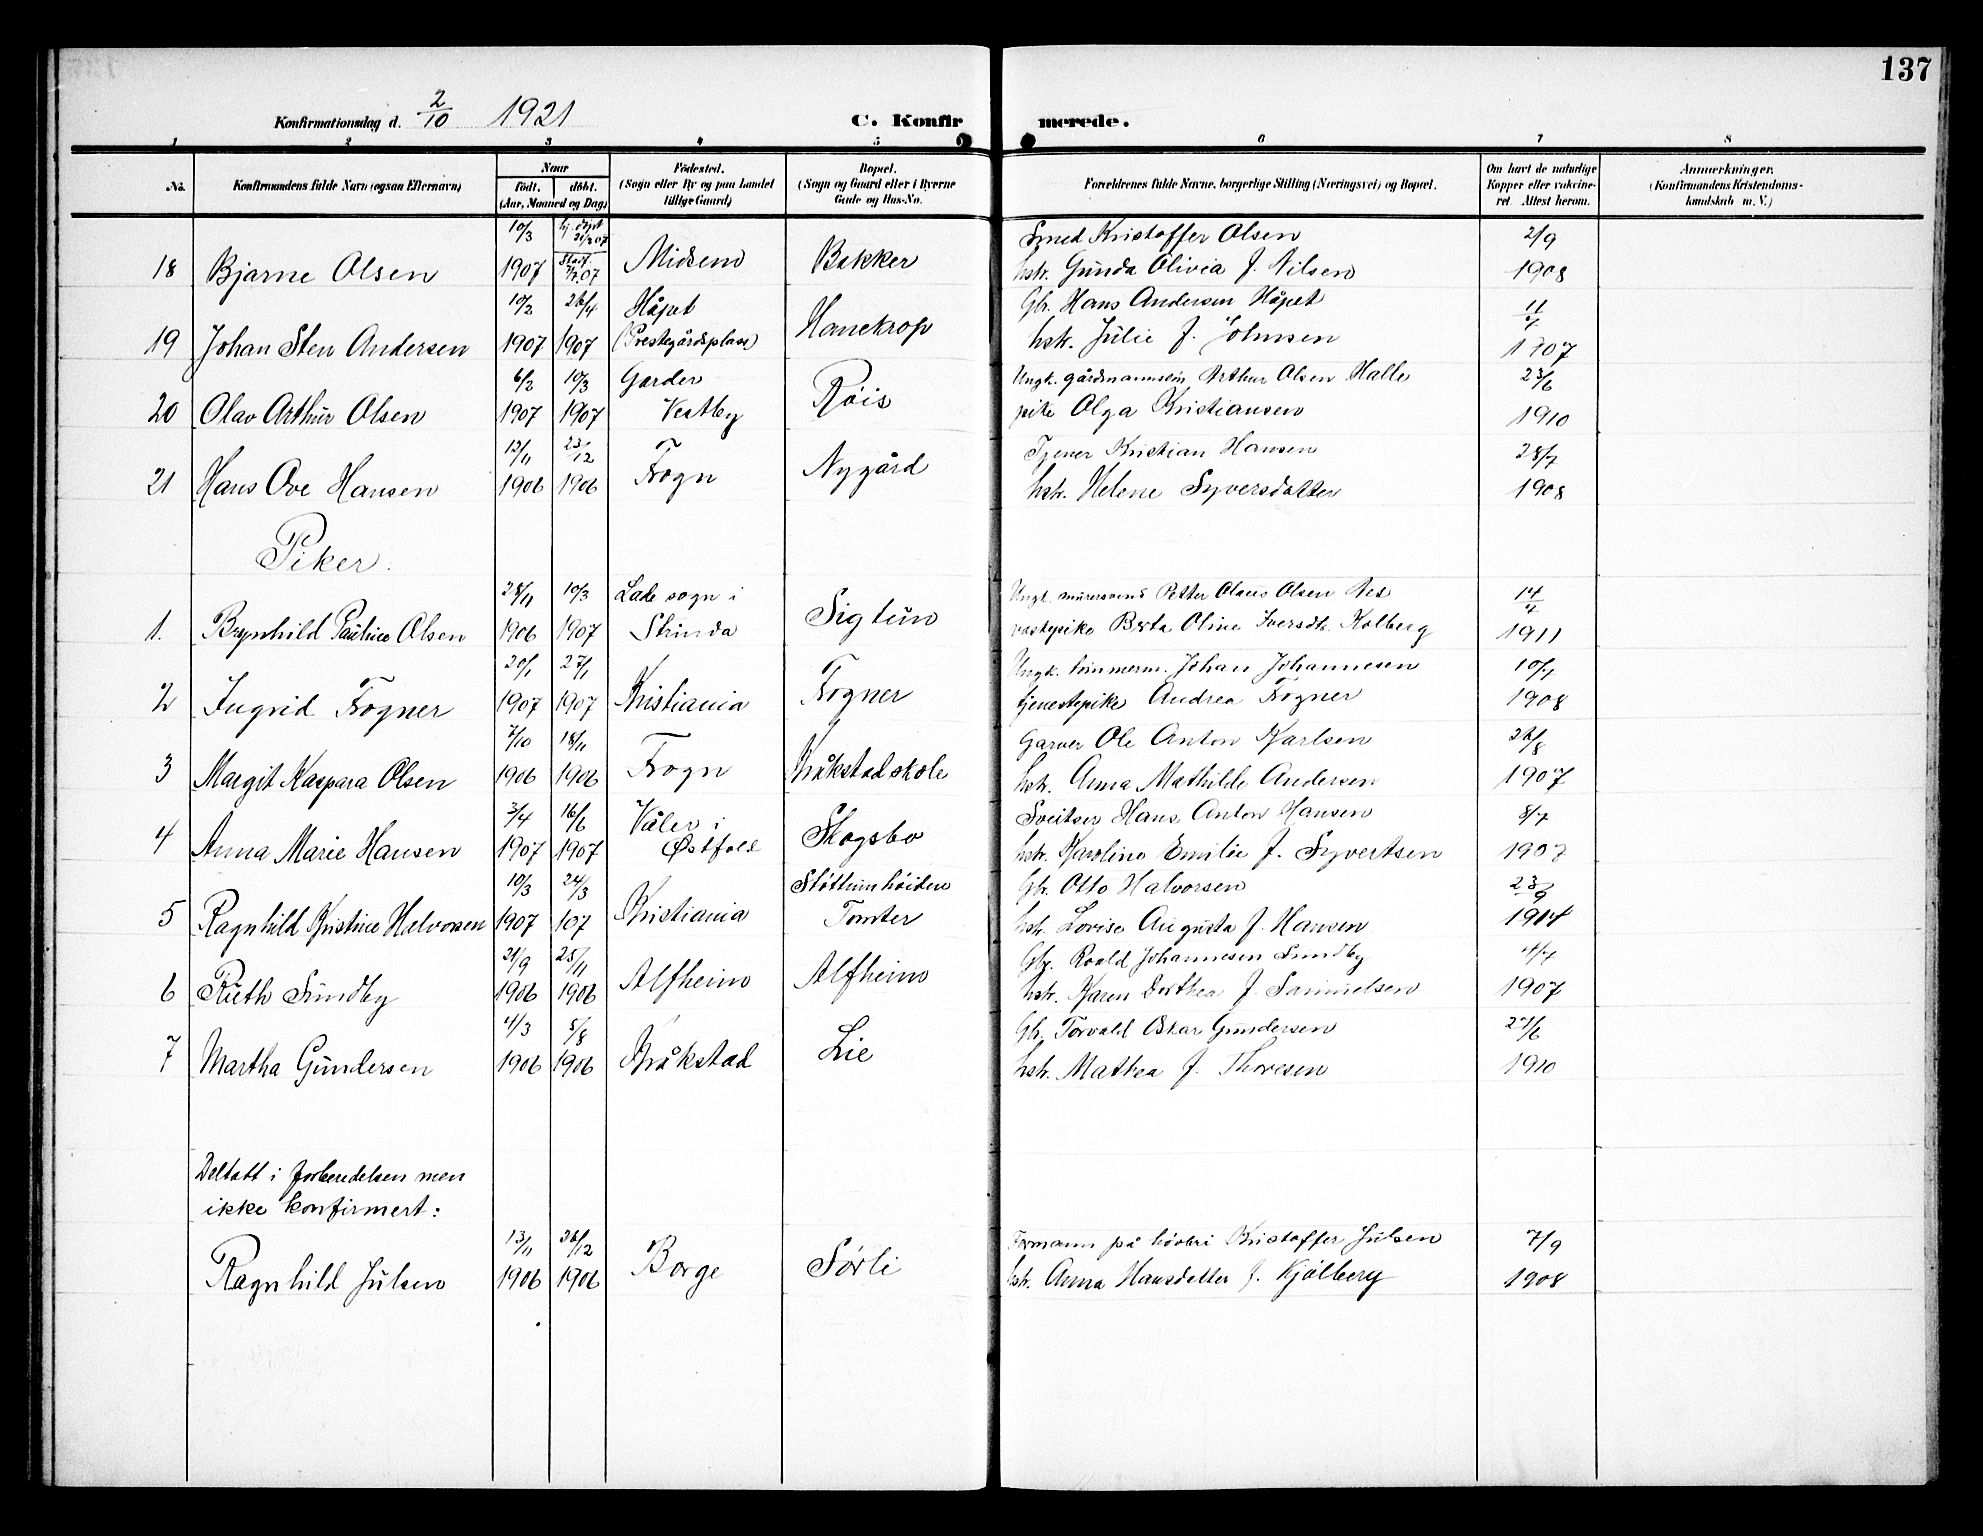 137
Konfirmationsdag d. 2/10 1921 C. Konfirmerede.
1 2 3 4 5 6 7 8
No. Konfirmandens fulde Navn (ogsaa Efternavn) Naar født. døbt. (Aar, Maaned og Dag) Fødested. (Sogn eller By og paa Landet tillige Gaard) Bopæl. (Sogn og Gaard eller i Byerne Gade og Hus-No. Forældrenes fulde Navne, borgerlige Stilling (Næringsvei) og Bopæl. Om havt de naturlige Kopper eller vakcineret. Attest herom. Anmærkninger. (Konfirmandens Kristendomskundskab m. V.)
10/3 hj. døpt 21/3 07 Smed Kristoffer Olsen 2/9
18 Bjarne Olsen 1907 Stadf. 7/7 07 Midsem Bakker hstr. Gunda Olivia f. Nilsen 1908
10/2 26/4 Håpet Gbr. Hans Andersen Håpet 11/7
19 Johan Sten Andersen 1907 1907 (Prestegårdsplass) Hanekrop hstr. Julie f. Johnsen 1907
6/2 10/3 Garder Ungk. gårdmannssøn Arthur Olsen Halle 23/6
20 Olav Arthur Olsen 1907 1907 Vestby Røis pike Olga Kristiansen 1910
12/11 23/12 Tjener Kristian Hansen 28/7
21 Hans Ove Hansen 1906 1906 Frogn Nygård hstr. Helene Syversdatter 1908
Piker.
28/11 10/3 Lade sogn i Ungk. murersvend Petter Olaus Olsen Nes 14/7
1. Brynhild Pauline Olsen 1906 1907 Strinda Sigtun vaskepike Berta Oline Iversdtr. Kolberg 1911
20/1 27/1 Ungk. tømmerm. Johan Johannesen 10/7
2 Ingrid Frogner 1907 1907 Kristiania Frogner tjenestepike Andrea Frogner 1908
7/10 18/11 Garver Ole Anton Karlsen 26/8
3 Margit Kaspara Olsen 1906 1906 Frogn Kråkstad skole hstr. Anna Mathilde Andersen 1907
3/4 16/6 Våler i Sveitser Hans Anton Hansen 8/7
4 Anna Marie Hansen 1907 1907 Østfold Skogsbo hstr. Karoline Emilie f. Syvertsen 1907
10/3 24/3 Støttumhøiden Gbr. Otto Halvorsen 23/9
5 Ragnhild Kristine Halvorsen 1907 107 Kristiania Tomter hstr. Lovise Augusta f. Hansen 1914
21/9 25/11 Gbr. Roald Johannesen Sundby 4/4
6 Ruth Sundby 1906 1906 Alfheim Alfheim hstr. Karen Dorthea f. Samuelsen 1907
4/3 5/8 Gbr. Torvald Oskar Gundersen 27/6
7 Martha Gundersen 1906 1906 Kråkstad Lie hstr. Mathea f. Thoresen 1910
Deltatt i forberedelsen men
ikke konfirmert:
13/11 26/12 Formann på høvleri Kristoffer Julsen 7/9
Ragnhild Julsen 1906 1906 Borge Sørli hstr. Anna Hansdatter f. Kjølberg 1908